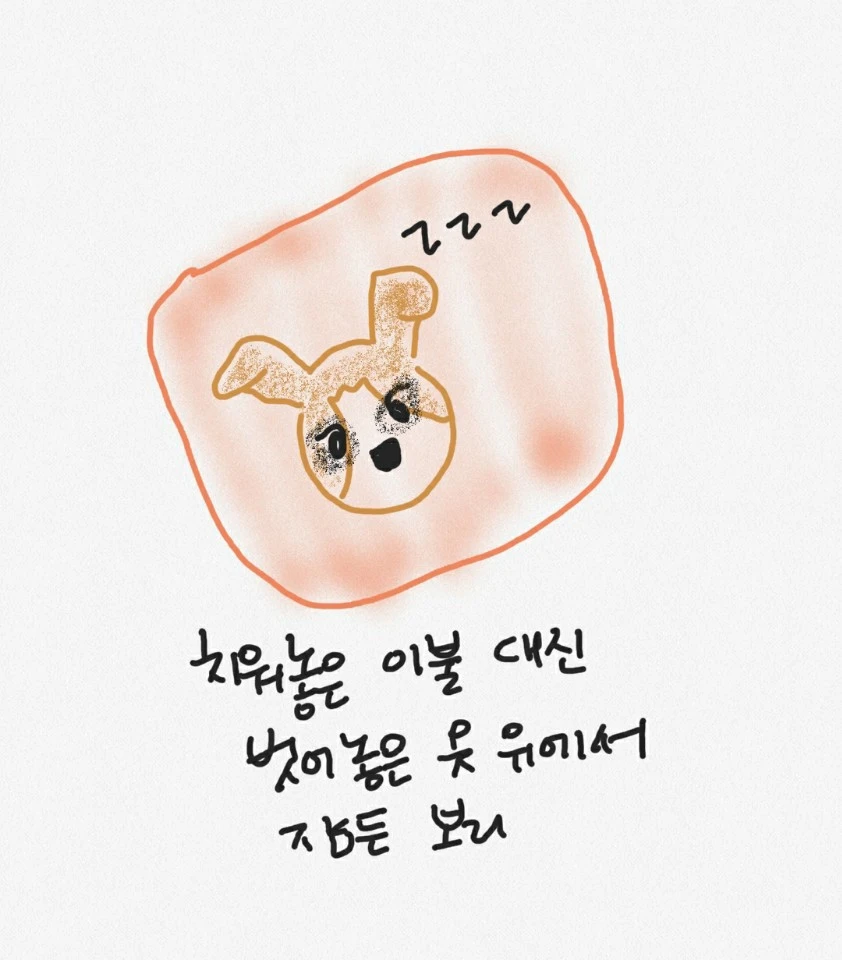 zzz
치워놓은 이불 대신
벗어놓은 옷 위에서
잠든 보리